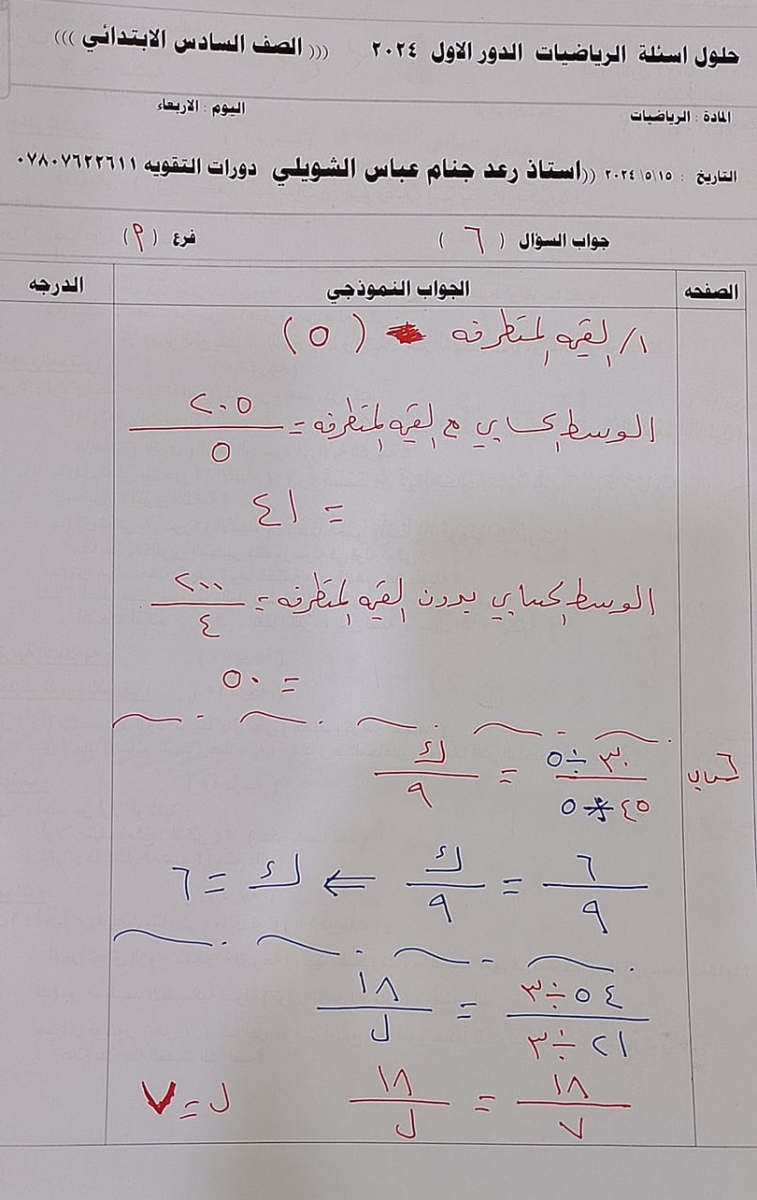 حلول اسئلة الرياضيات الدور الاول ٢٠٢٤ ((( الصف السادس الابتدائي )))
المادة : الرياضيات اليوم : الاربعاء
التاريخ : ٢٠٢٤/٥/١٥ ((استاذ رعد جنام عباس الشويلي دورات التقويه ٠٧٨٠٧٦٢٢٦١١
جواب السؤال ( ٦ ) فرع ( م )
الصفحه الجواب النموذجي الدرجه
١/ القيمه المتطرفه (٥)
الوسط الحسابي مع القيمه المتطرفه = ٢٠٥/٥
= ٤١
الوسط الحسابي بدون القيمه المتطرفه = ٢٠٠/٤
= ٥٠
٣٠ ÷ ٥ / ٤٥ * ٥ = ك / ٩
٦/٩ = ك/٩ ⇐ ك = ٦
٥٤ ÷ ٣ / ٢١ ÷ ٣ = ١٨ / ل
١٨/٧ = ١٨/ل ل = ٧